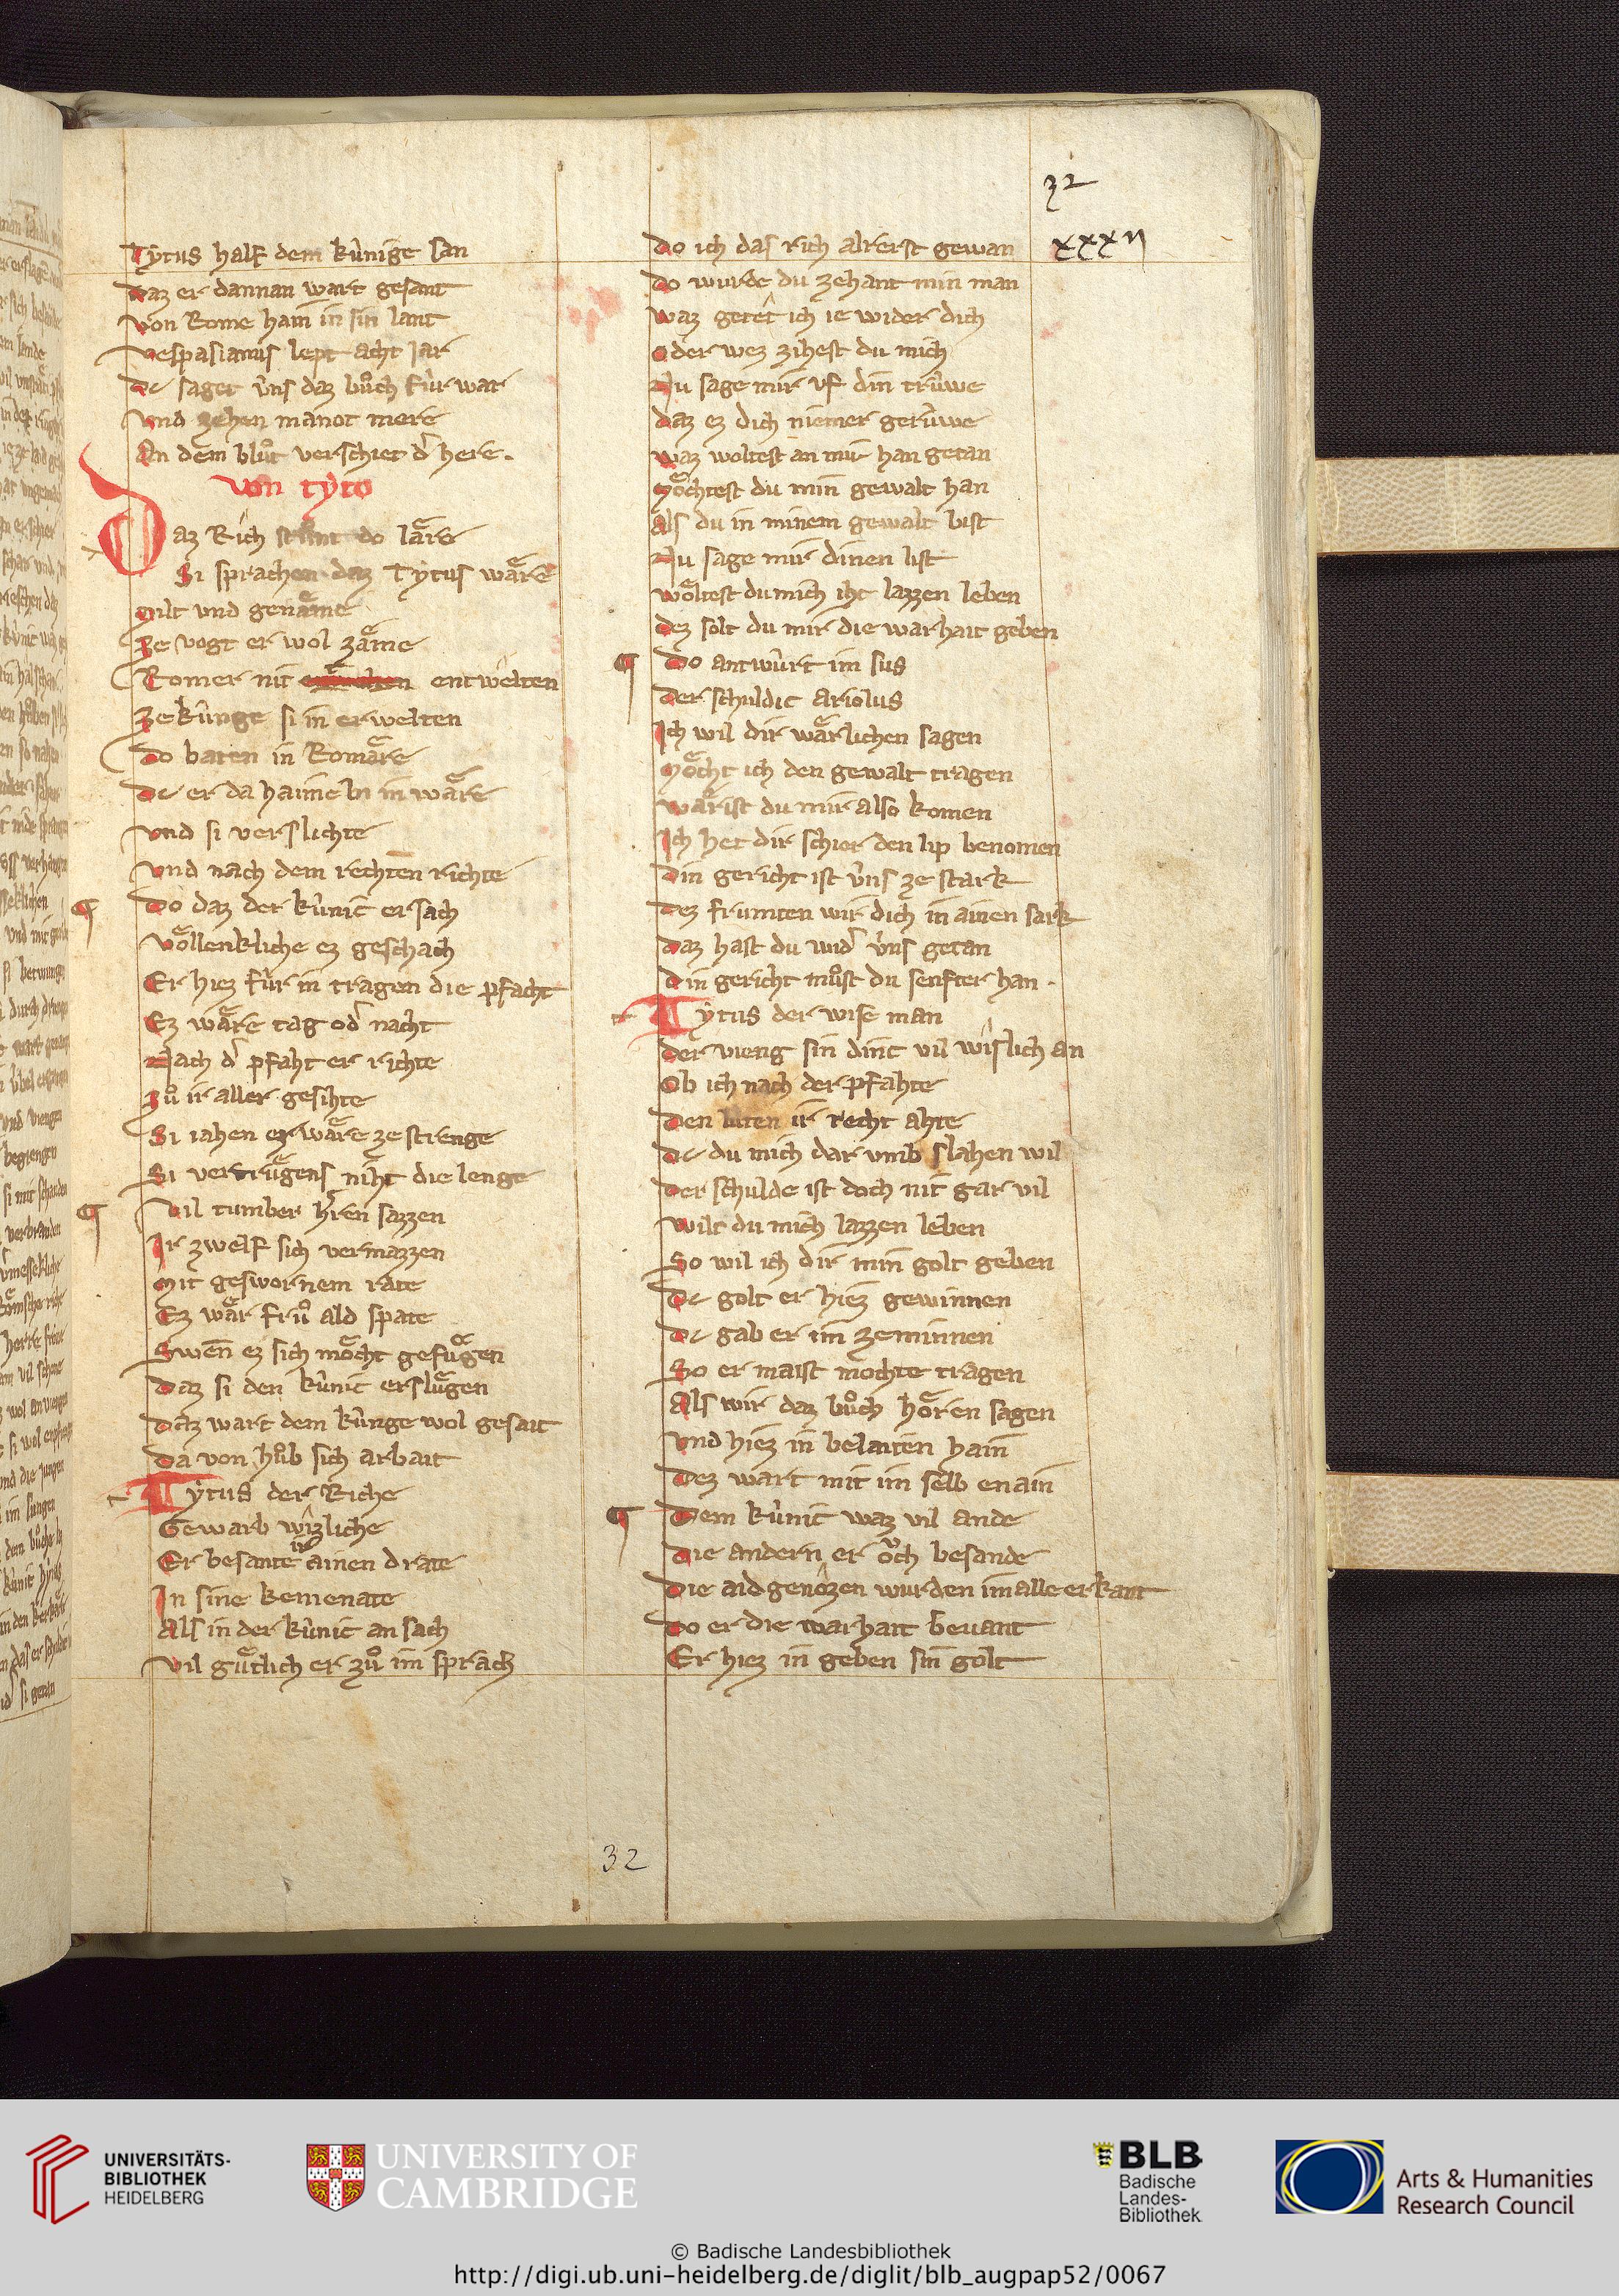 32
xxxij
Tytus half dem kúnige san
daz er dannan wart gesant
von Rome haim in sin lant
vespasianus lept acht Jar
dc saget úns daz bůch fúr war
vnd zehen manot mere
An dem blůt verschiet d' here .
von tyto
Daz Rich stůnt do lere
Si sprachen daz Tytus wåre
milt vnd genåme
Ze vogt er wol zåme
Romer nit entwelten
Ze kúnge si in erwelten
do baten in Romåre
dc er da haime bi in wåre
vnd si verslichte
vnd nach dem rechten richte
¶ do daz der kúnic ersach
vollenkliche ez geschach
Er hiez fúr in tragen die pfacht
Ez wåre tag od' nacht
Nach d' pfaht er richte
zů ir aller gesihte
Si iahen ez wåre ze strenge
Si vertrůgens niht die lenge
¶ vil tumber h'ren sazzen
Ir zwelf sich vermazzen
mit geswornem rate
Ez wår frů ald spate
Swen ez sich möcht gefůgen
daz si den kúnic erslůgen
daz wart dem kúnge wol gesait
da von hůb sich arbait
Tytus der Riche
Gewarb wizliche
Er besante ir ainen drate
In sine kemenate
Als in der kúnic an sach
vil gůtlich er zů im sprach
do ich das rich alrerst gewan
do wurde du zehant min man
waz getet ich ie wider dich
oder wez zihest du mich
Nu sage mir vf din trúwe
daz ez dich niemer gerúwe
waz woltest an mir han getan
möchtest du min gewalt han
Als du in minem gewalt bist
Nu sage mir dinen list
wöltest du mich iht lazzen leben
dez solt du mir die warhait geben
¶ do antwúrt im sus
der schuldic ariolus
Ich wil dir wårlichen sagen
möcht ich den gewalt tragen
wårist du mir also komen
Ich het dir schier den lip benomen
din gericht ist úns ze stark
dez frumten wir dich in ainen sark
daz hast du wid' úns getan
din gericht můst du senfter han .
Tytus der wise man
der vieng sin dinc vil wislich an
Ob ich nach der pfahte
den lúten ir recht ahte
dc du mich dar vmb slahen wil
der schulde ist doch nit gar vil
wilt du mich lazzen leben
So wil ich dir min golt geben
dc golt er hiez gewinnen
dc gab er im ze minnen
So er maist mochte tragen
Als wir daz bůch hören sagen
vnd hiez in belaiten haim
dez wart mit im selb enain
¶ dem kúnic waz vil ande
die andern er öch besande
die aidgenozen wurden im alle erkant
do er die warhait bevant
Er hiez in geben sin golt
32
UNIVERSITÄTS-
BIBLIOTHEK
HEIDELBERG
UNIVERSITY OF
CAMBRIDGE
BLB
Badische
Landes-
Bibliothek
Arts & Humanities
Research Council
© Badische Landesbibliothek
http://digi.ub.uni-heidelberg.de/diglit/blb_augpap52/0067